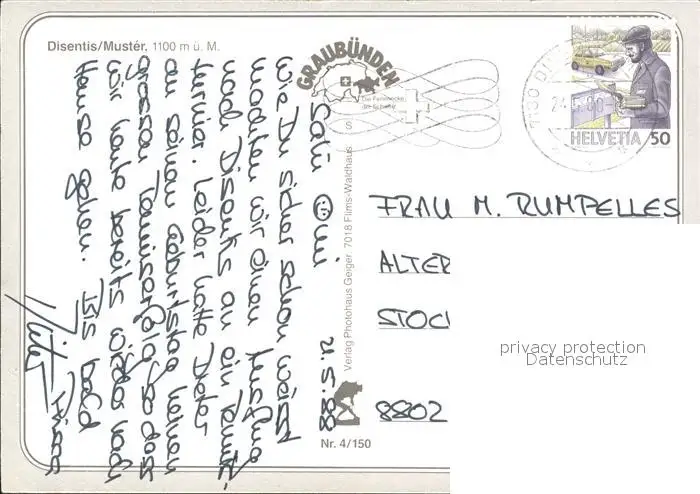 Disentis/Mustér, 1100 m ü. M.
GRAUBÜNDEN
Die Ferienecke
der Schweiz
HELVETIA 50
Salü Omi
21.5.88
wie Du sicher schon weisst
machten wir einen Ausflug
nach Disentis an ein Tennis-
turnier. Leider hatte Dieter
an seinem Geburtstag keinen
grossen Tenniserfolg, so dass
wir heute bereits wieder nach
Hause gehen. Bis bald
Dieter
Verlag Photohaus Geiger, 7018 Flims-Waldhaus
Nr. 4/150
FRAU M. RUMPELLES
ALTER
STOC
8802
privacy protection
Datenschutz